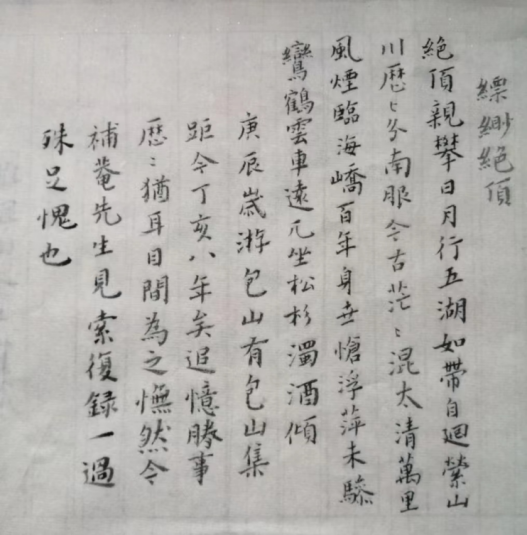 縹緲絕頂
絶頂親攀日月行五湖如帶自迴縈山
川歷〻分南服今古茫〻混太清萬里
風煙臨海嶠百年身世愴浮萍未驂
鸞鶴雲車遠兀坐松杉濁酒傾
庚辰歲游包山有包山集
距今丁亥八年矣追憶勝事
歷〻猶耳目間為之憮然今
補菴先生見索復録一過
殊足愧也